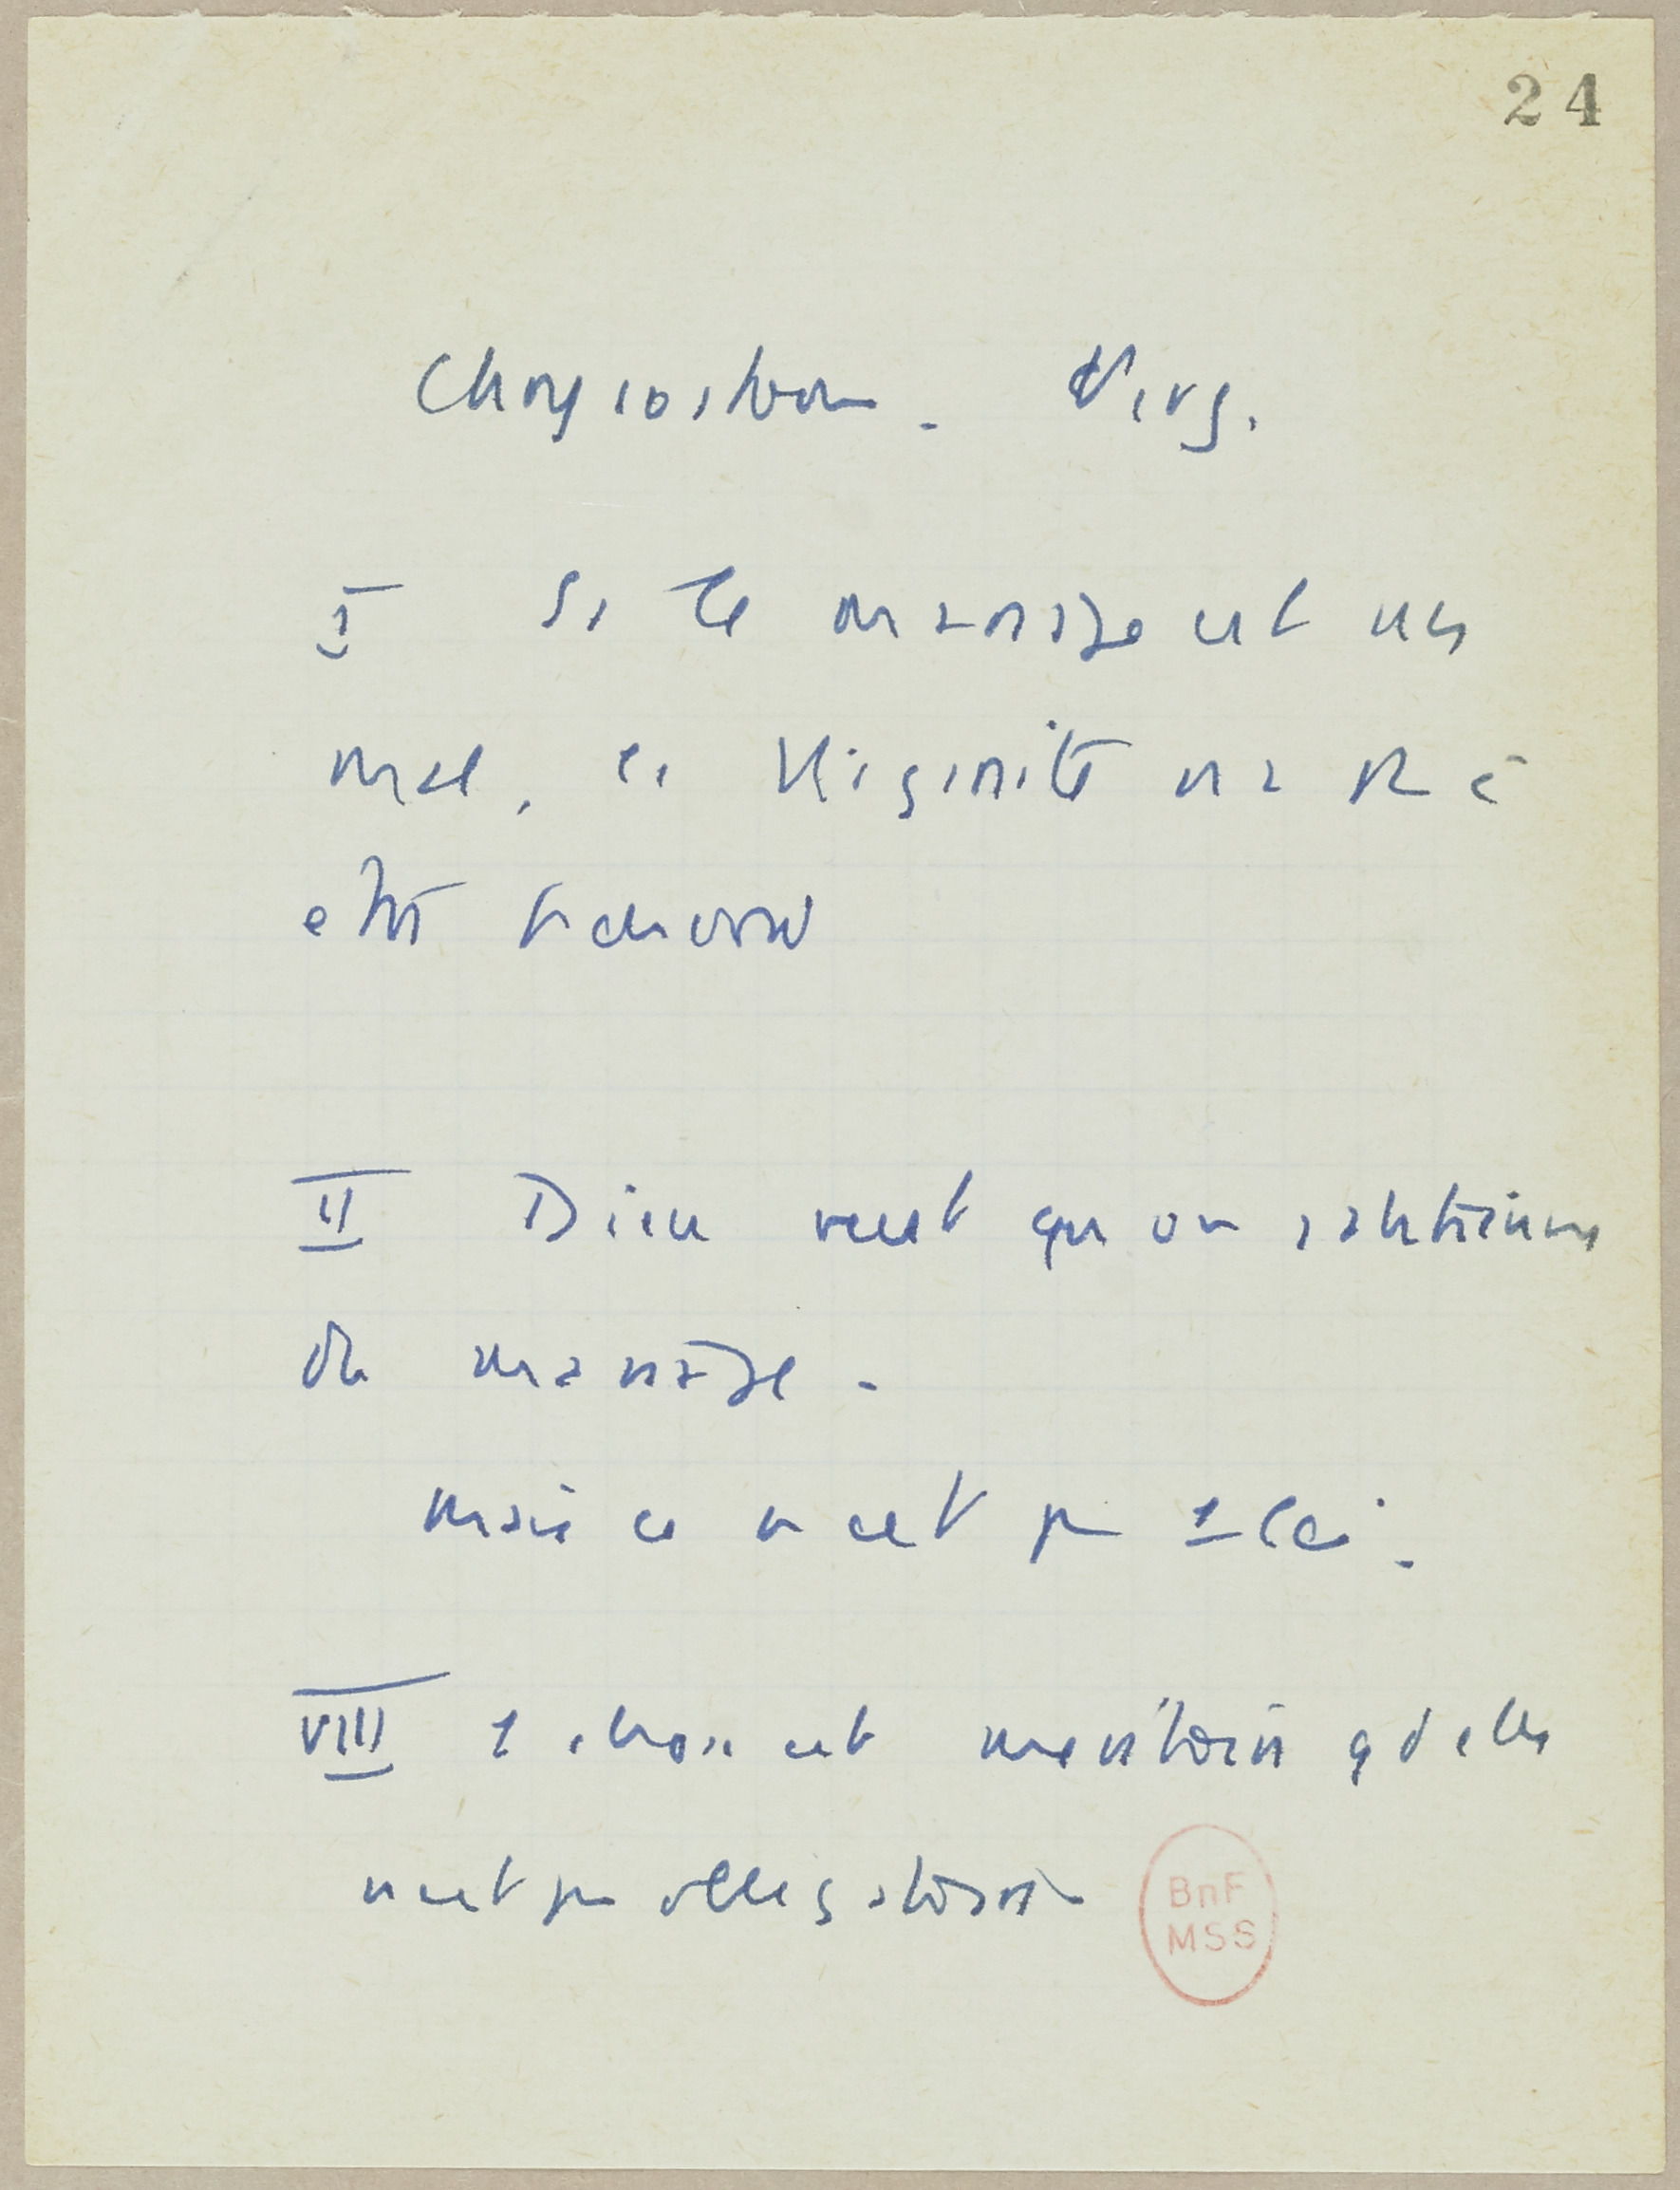 24
Chrysostome. Virg.
I Si le mariage est un
mal, la virginité n'a pas à
être
II Dieu veut qu'on s'abstienne
du mariage.
mais ce n'est pas 1 loi.
VIII 1 chose est méritoire qd elle
n'est pas obligatoire
BnF
MSS